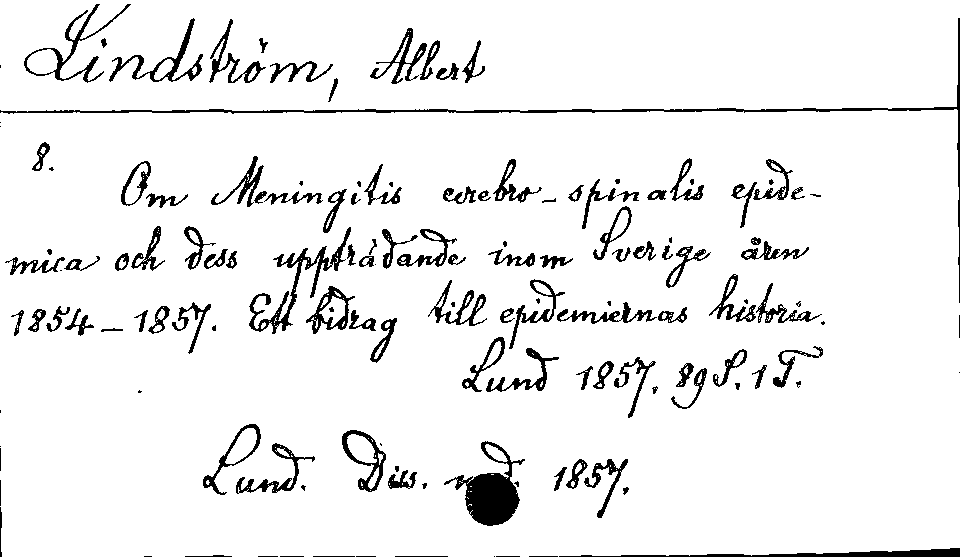 Lindström, Albert
8.
Om Meningitis cerebro-spinalis epide-
mica och dess uppträdande inom Sverige åren
1854-1857. Ett bidrag till epidemiernas historia.
Lund 1857. 89 S. 1 T.
Lund. Diss. 1857.